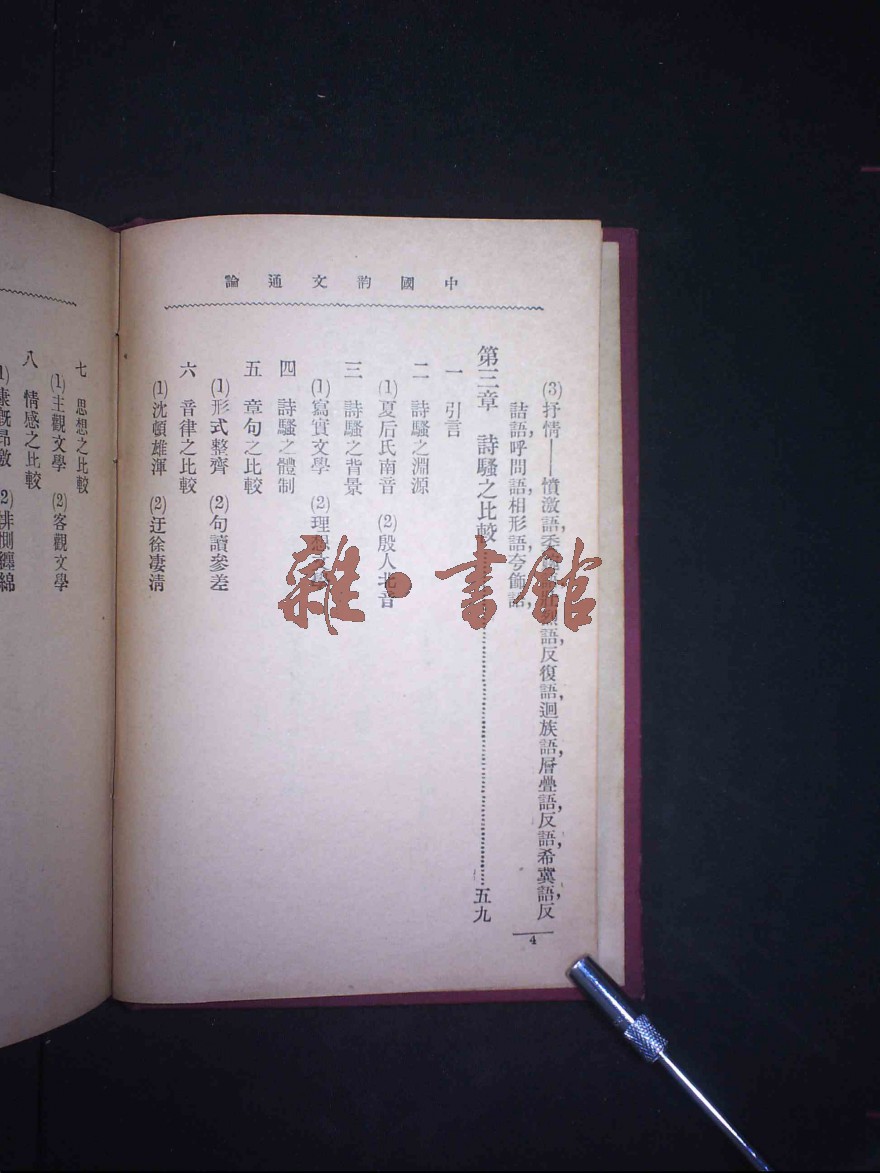 中國韵文通論
(3)抒情——憤激語,委 語,反復語,迴族語,層疊語,反語,希冀語,反
詰語,呼問語,相形語,夸飾語,
第三章 詩騷之比較……五九
一 引言
二 詩騷之淵源
(1)夏后氏南音 (2)殷人北音
三 詩騷之背景
(1)寫實文學 (2)理想文學
四 詩騷之體制
五 章句之比較
(1)形式整齊 (2)句讀參差
六 音律之比較
(1)沈頓雄渾 (2)迂徐凄清
4
七 思想之比較
(1)主觀文學 (2)客觀文學
八 情感之比較
(2)悱惻纏綿
雜·書館